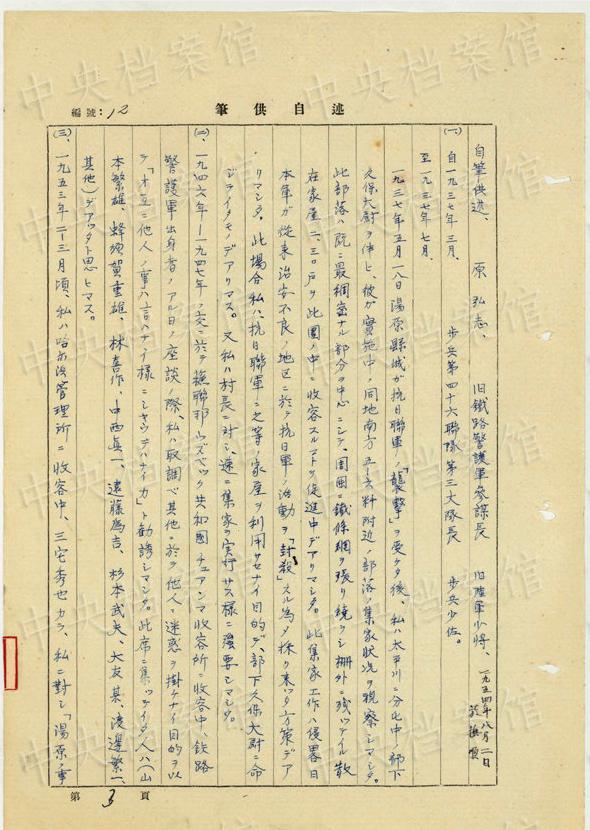 編號:12
述自供筆
自筆供述、 原 弘志、 旧鐵路警護軍参謀長 旧陸軍少将、
一九五四年八月二日
(一)、自一九三七年三月、 歩兵第四十六聯隊第三大隊長 歩兵少佐。
至一九三七年七月、
一九三七年五月一八日湯原縣城ガ抗日聯軍ノ「襲撃」ヲ受ケタ後、私ハ太平川ニ分屯中ノ部下
久保大尉ヲ伴ヒ、彼ガ實施中ノ同地南方五—六粁附近ノ部落ノ集家状況ヲ視察シマシタ。
此部落ハ既ニ最稠密ナル部分ヲ中心ニシテ、周囲ニ鐵條網ヲ張リ繞ラシ柵外ニ残ッテイル散
在家屋二、三〇戸ヲ此圍ノ中ニ收容スルコトヲ促進中デアリマシタ。此集家工作ハ侵畧日
本軍ガ從来治安不良ノ地区ニ於テ抗日軍ノ活動ヲ「封殺」スル為メ採リ来ッタ方策デア
リマシタ。此場合私ハ、抗日聯軍ニ之等ノ家屋ヲ利用サセナイ目的デ、部下久保大尉ニ命
ジテイタモノデアリマス。又私ハ村長ニ対シ、速ニ集家ノ実行サス様ニ強要シマシタ。
(二)、一九四六年—一九四七年ノ交ニ於テ蘓聯邦ウズベック共和國チュアンマ收容所ニ收容中、鉄路
警護軍出身者ノアル日ノ座談ノ際、私ハ取調ベ其他ニ於テ他人ニ迷惑ヲ掛ケナイ目的ヲ以
テ「オ互ニ他人ノ事ハ言ハナイ様ニシヤウデハナイカ」ト勧誘シマシタ。此席ニ集ッテイタ人ハ(山
本繁雄、蜂須賀重雄、林喜作、中西眞一、遠藤為吉、杉本武夫、大友某、渡邊繁一、
其他)デアッタト思ヒマス。
(三)、一九五三年二—三月頃、私ハ哈尓浜管理所ニ收容中、三宅秀也カラ、私ニ対シ「湯原ノ事
第 3 頁
中央档案馆